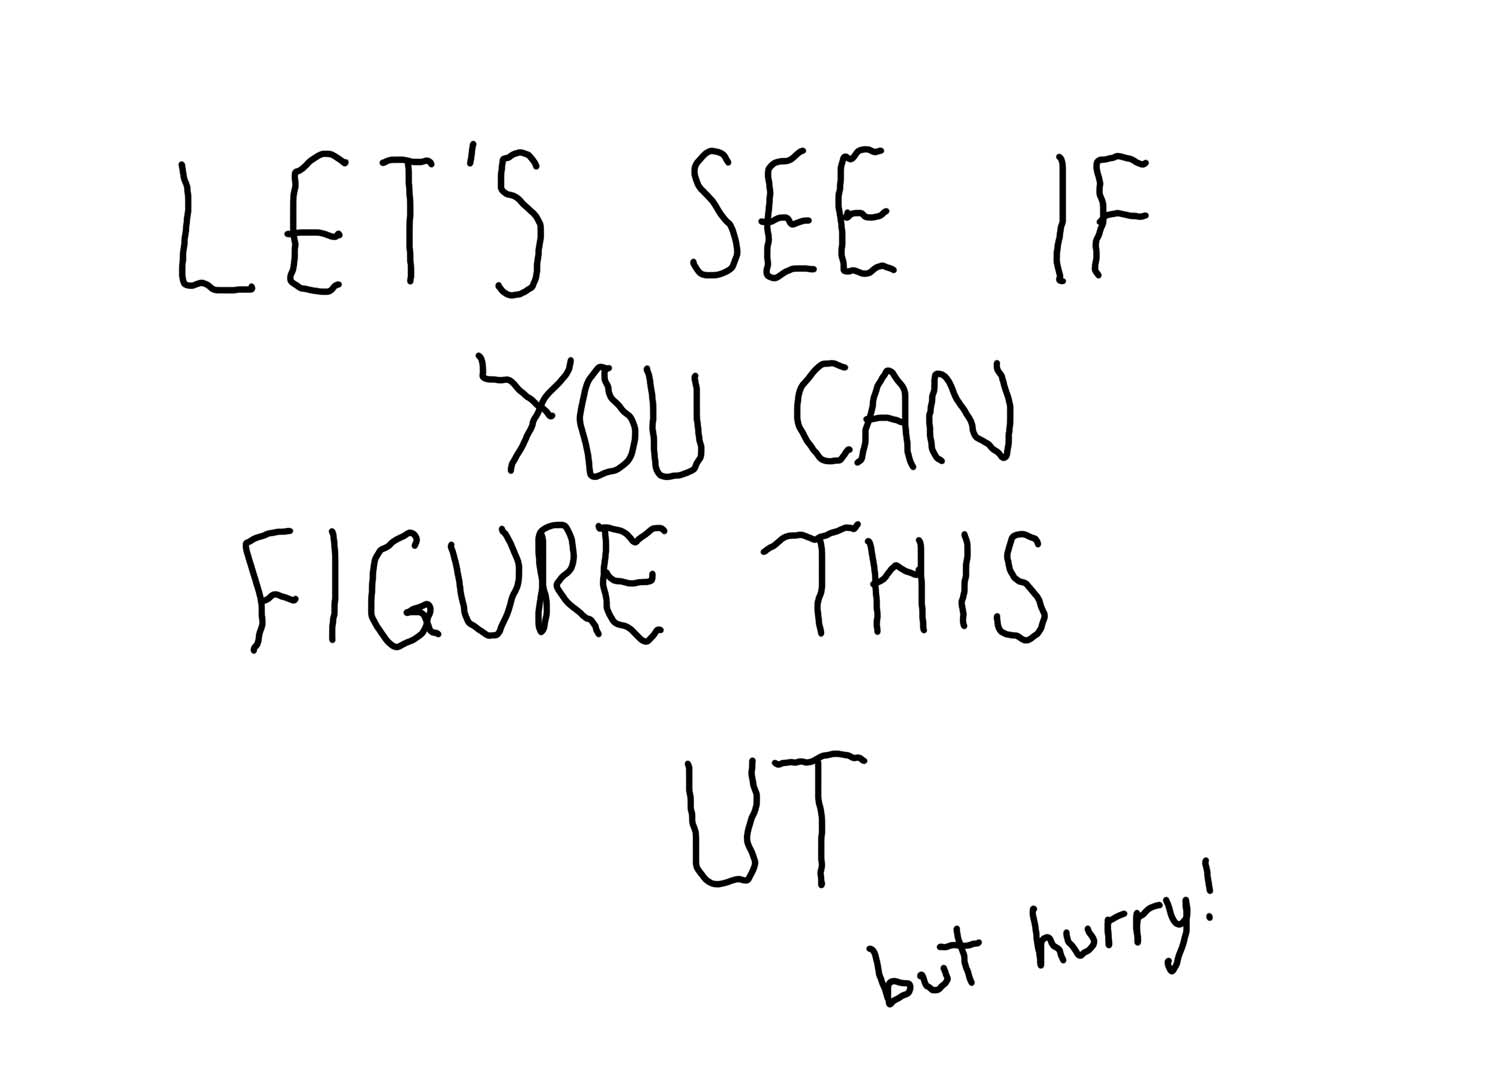 LET'S SEE IF
YOU CAN
FIGURE THIS
UT
but hurry!